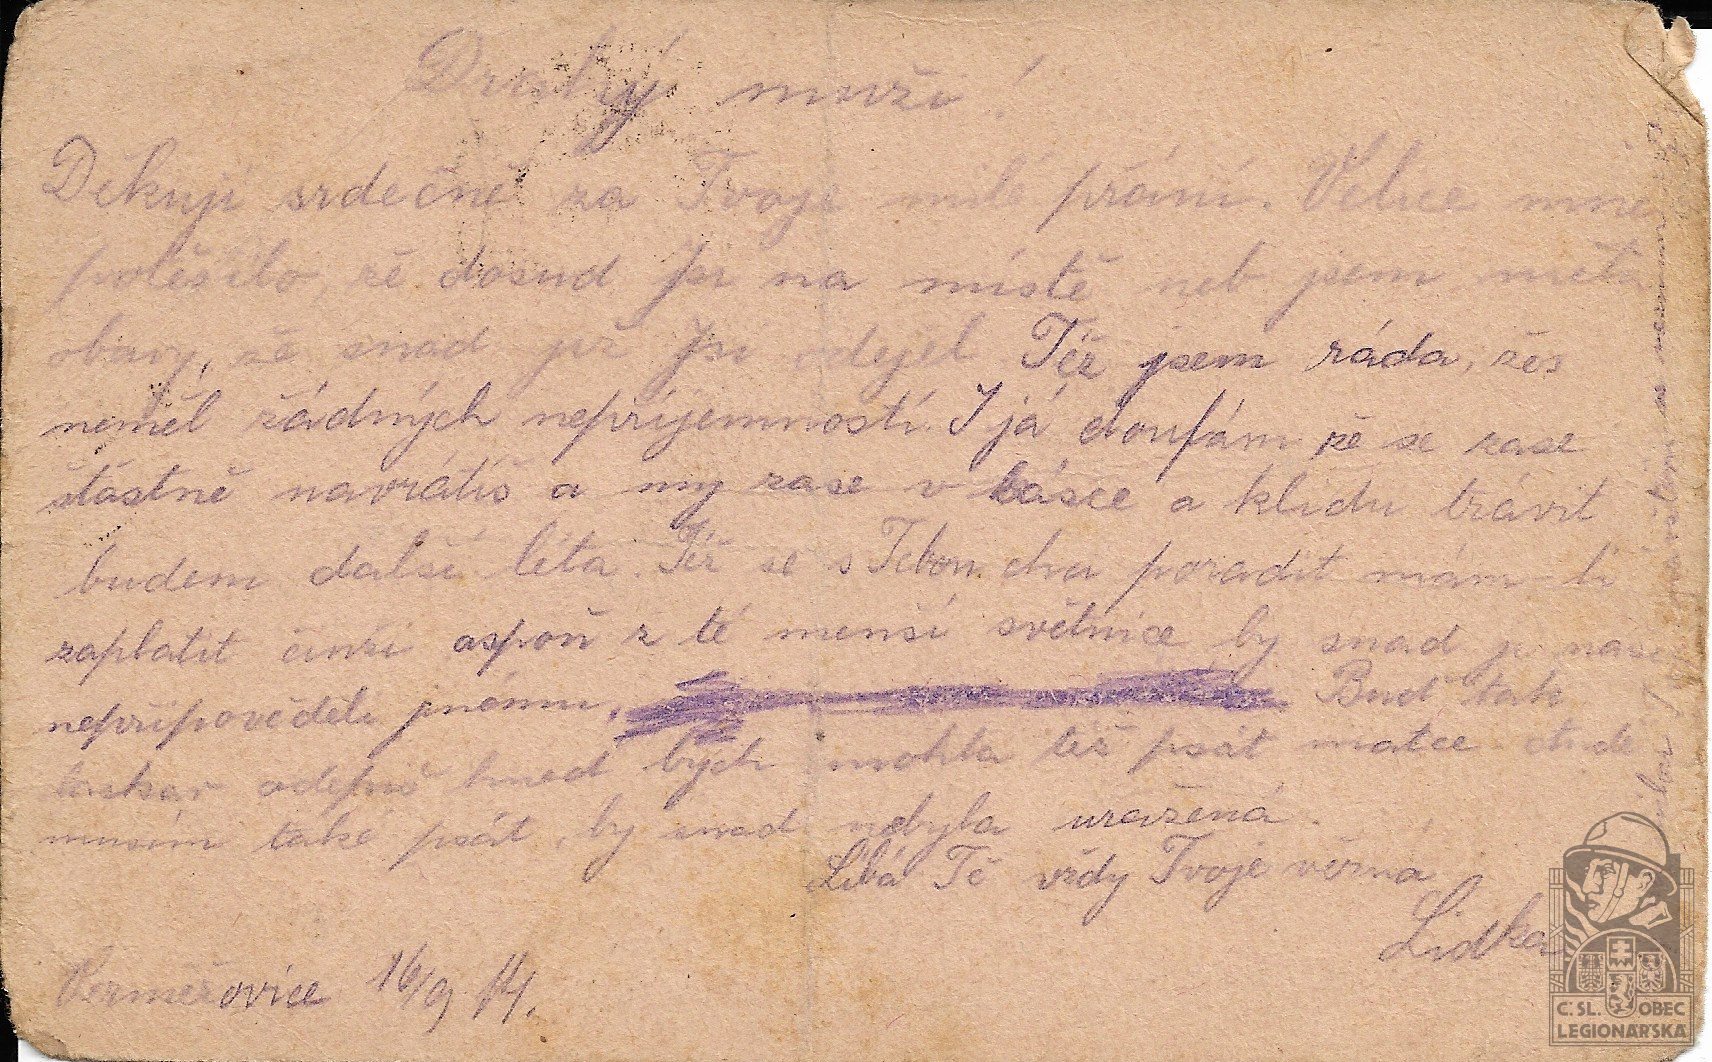 Drahý muži!
Děkuji srdečně za Tvoje milé přání. Velice mne
potěšilo, že dosud jsi na místě neb jsem měla
obavy, že snad již jsi odejel Též jsem ráda, žes
neměl žádných nepříjemností. I já doufám že se zase
šťastně navrátíš a my zase v lásce a klidu trávit
budem další léta. Též se s Tebou chci poradit mám-li
zaplatit činži aspoň z té menší světnice by snad ji naši
nepřipověděli jinému. Buď tak
laskav odepiš hned bych mohla též psát matce
musím také psát, by snad nebyla uražená.
Líbá Tě vždy Tvoje věrná
Lidka
Verměřovice 16/9 14.
Č.SL. OBEC
LEGIONÁŘSKÁ